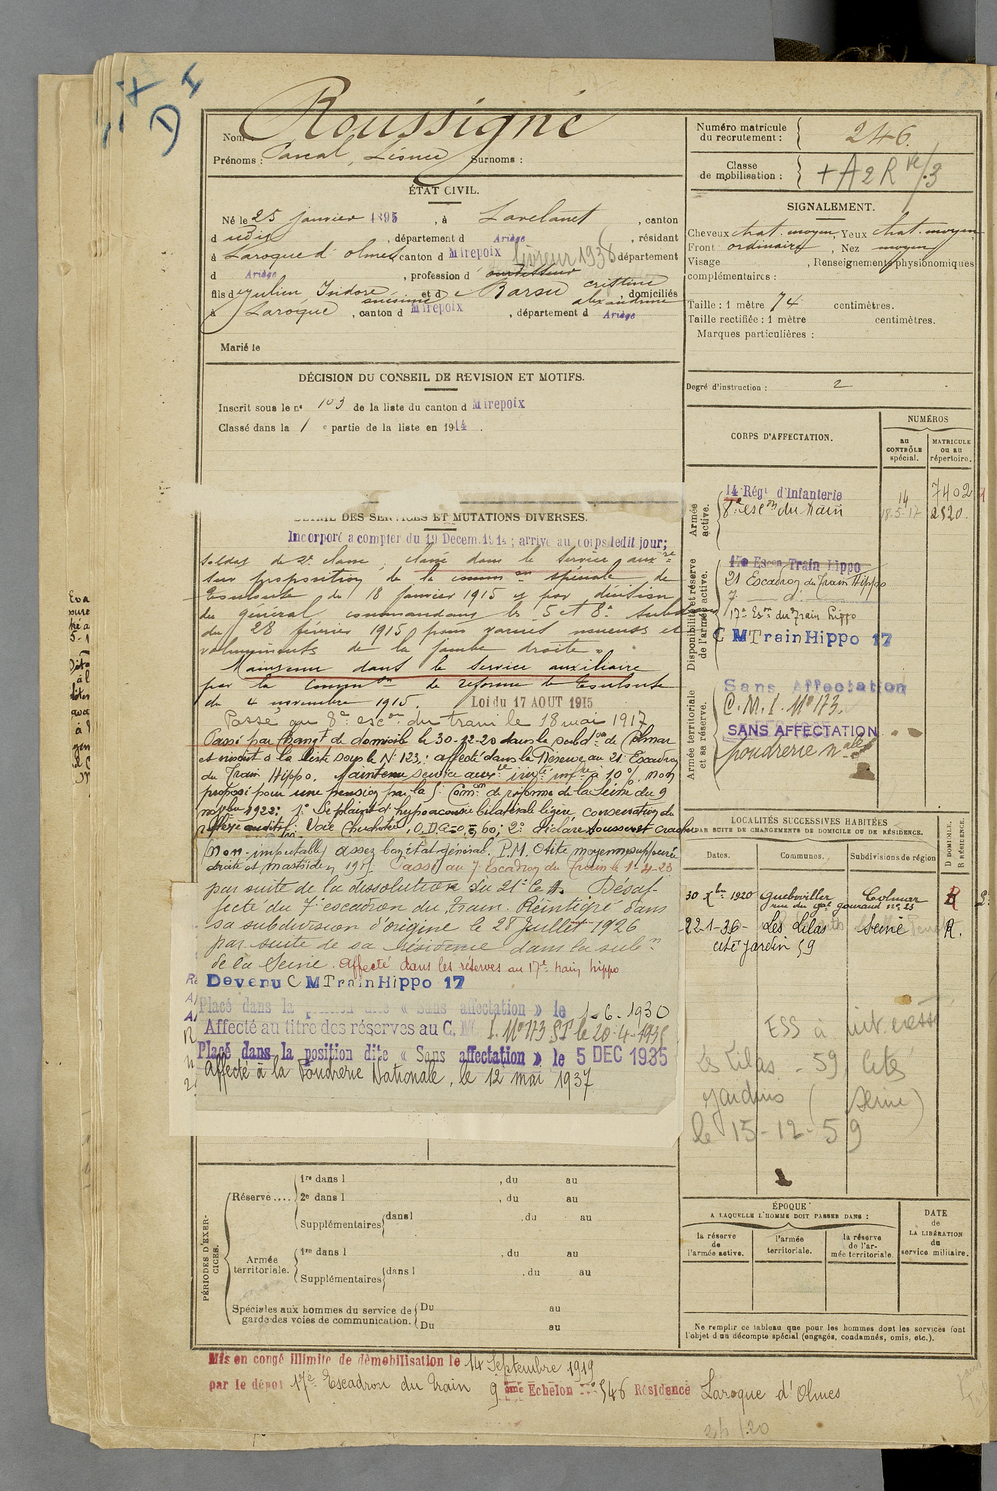 Nom: Roussigné
Prénoms: Pascal, Léonce Surnoms:
Numéro matricule du recrutement: 246.
Classe de mobilisation:
ÉTAT CIVIL.
Né le 25 janvier 1895, à Lavelanet, canton
d udit, département d Ariège, résidant
à Laroque d'olmes canton d Mirepoix département
d Ariège, profession d
fils de Julien, Isidore et d e Barou cristine
domiciliés
à Laroque, canton d Mirepoix, département d Ariège
Marié le
DÉCISION DU CONSEIL DE RÉVISION ET MOTIFS.
Inscrit sous le n° 103 de la liste du canton d Mirepoix
Classé dans la 1 e partie de la liste en 1914.
SIGNALEMENT.
Cheveux chat. moyen, Yeux chat. moyen
Front ordinaire, Nez moyen
Visage , Renseignements physionomiques
complémentaires:
Taille: 1 mètre 74 centimètres.
Taille rectifiée: 1 mètre centimètres.
Marques particulières:
Degré d'instruction: 2
CORPS D'AFFECTATION.
NUMÉROS
AU CONTRÔLE spécial.
MATRICULE OU AU répertoire.
Armée active.
14 Régt d'Infanterie 14 7402
8e escon du train 18.5.17 2520.
Disponibilité et réserve de l'armée active.
17e Escon Train Hippo
21 Escadron du Train Hippo
7 d°
17e Eson du Train Hippo
C M Train Hippo 17
Armée territoriale et sa réserve.
Sans Affectation
C. M. I. N° 173.
SANS AFFECTATION
poudrerie nale
DÉTAIL DES SERVICES ET MUTATIONS DIVERSES.
Incorporé a compter du 19 Decem. 1914; arrivé au corps ledit jour;
soldat de 2e classe, classé dans le service auxre
sur proposition de la common spéciale de
Toulouse du 18 janvier 1915 et par décision
du général commandant les 5 et 8e subdons
du 28 février 1915 pour genoux
volumineux de la jambe droite.
Maintenu dans le service auxiliaire
par la Commion de réforme de Toulouse
du 4 novembre 1915. Loi du 17 AOUT 1915
Passé au 8e escon du train le 18 mai 1917
Passé par changt de domicile le 30-12-20 dans la subdon de Colmar
et inscrit à la liste sous le N° 123; affecté dans la Réserve au 21 Escadron
du Train Hippo. Maintenu service auxre invté infre à 10%. Non
proposé pour une pension par la Comon de réforme de la Seine du 9
novbre 1922: 1° Se plaint d'hypoacousie bilatérale légère, conservation du
réflexe auditif: Voie chuchotée, O.D. O.G. 60; 2°
(non imputable) assez bon état général. P.M. Otite moyenne suppurée
droite et mastoïde en 1917. Passé au 7 Escadron du Train le 1-4-23
par suite de la dissolution du 21e le . Désaf-
fecté du 7e escadron du Train. Réintégré dans
sa subdivision d'origine le 28 juillet 1926
par suite de sa résidence dans la subon
de la Seine. Affecté dans les réserves au 17e train hippo
Devenu C M Train Hippo 17
Placé dans la position dite « Sans affectation » le 1-6-1930
Affecté au titre des réserves au C. M. I. N° 173 SP le 20-4-1935
Placé dans la position dite « Sans affectation » le 5 DEC 1935
Affecté à la Poudrerie Nationale, le 12 mai 1937
LOCALITÉS SUCCESSIVES HABITÉES
PAR SUITE DE CHANGEMENTS DE DOMICILE OU DE RÉSIDENCE.
Dates. Communes. Subdivisions de région D DOMICILE. R RÉSIDENCE.
30 Xbre 1920 Guebwiller Colmar R
rue du gal gouraud n° 25
22-1-26- Les Lilas Seine R.
cité jardin 59
ESS à
Les Lilas - 59, Cités
Jardins (Seine)
le 15-12-59
PÉRIODES D'EXERCICES.
Réserve....
1re dans l , du au
2e dans l , du au
Supplémentaires dans l , du au
Armée territoriale.
1re dans l , du au
Supplémentaires dans l , du au
Spéciales aux hommes du service de garde des voies de communication.
Du au
Du au
ÉPOQUE
A LAQUELLE L'HOMME DOIT PASSER DANS:
la réserve de l'armée active.
l'armée territoriale.
la réserve de l'armée territoriale.
DATE de LA LIBÉRATION du service militaire.
Ne remplir ce tableau que pour les hommes dont les services font
l'objet d'un décompte spécial (engagés, condamnés, omis, etc.).
Mis en congé illimité de démobilisation le 14 Septembre 1919
par le dépôt 17e Escadron du Train 9 ème Echelon N° 546 Résidence Laroque d'Olmes